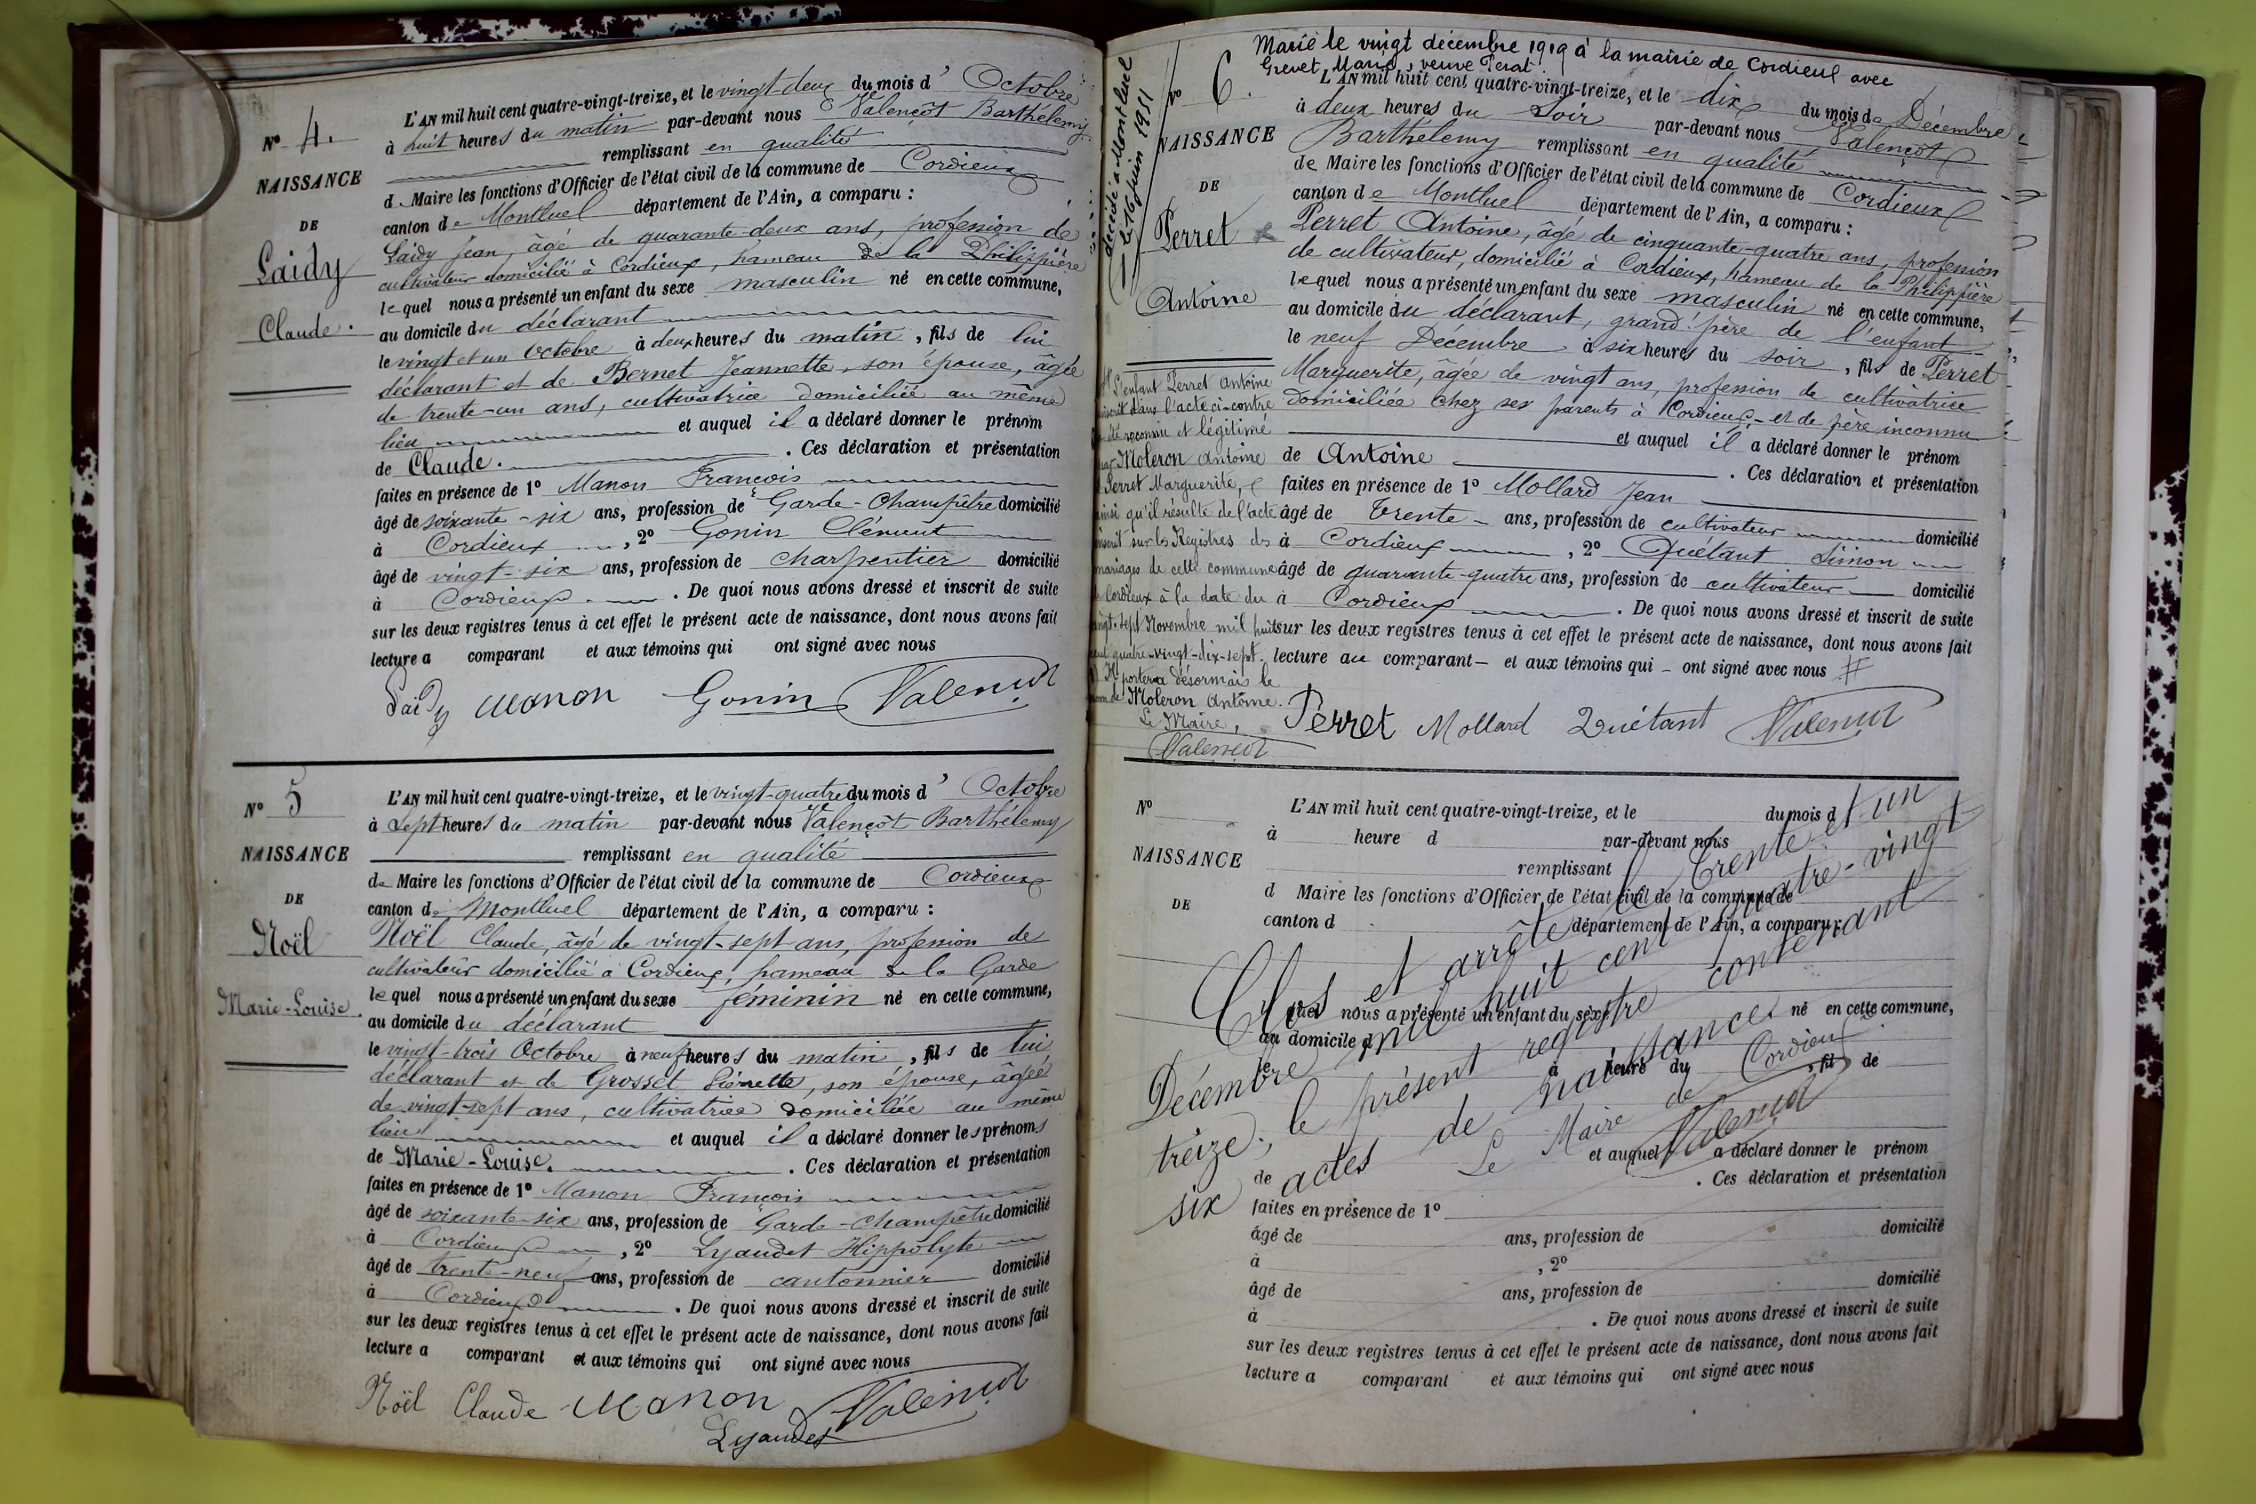 Nº 4.
NAISSANCE
DE
Laidy
Claude.
L'AN mil huit cent quatre-vingt-treize, et le vingt-deux du mois d'Octobre
à huit heures du matin par-devant nous Valençôt Barthélemy
remplissant en qualité
de Maire les fonctions d'Officier de l'état civil de la commune de Cordieux
canton de Montluel département de l'Ain, a comparu :
Laidy Jean, âgé de quarante-deux ans, profession de
cultivateur domicilié à Cordieux, hameau de la Philippière
lequel nous a présenté un enfant du sexe masculin né en cette commune,
au domicile du déclarant
le vingt et un Octobre à deux heures du matin, fils de lui
déclarant et de Bernet Jeannette, son épouse, âgée
de trente-un ans, cultivatrice domiciliée au même
lieu et auquel il a déclaré donner le prénom
de Claude. . Ces déclaration et présentation
faites en présence de 1º Manon François
âgé de soixante-six ans, profession de Garde-Champêtre domicilié
à Cordieux, 2º Gonin Clément
âgé de vingt-six ans, profession de charpentier domicilié
à Cordieux . De quoi nous avons dressé et inscrit de suite
sur les deux registres tenus à cet effet le présent acte de naissance, dont nous avons fait
lecture a comparant et aux témoins qui ont signé avec nous
Laidy Manon Gonin Valençot
Nº 5
NAISSANCE
DE
Noël
Marie-Louise.
L'AN mil huit cent quatre-vingt-treize, et le vingt-quatre du mois d'Octobre
à sept heures du matin par-devant nous Valençôt Barthélemy
remplissant en qualité
de Maire les fonctions d'Officier de l'état civil de la commune de Cordieux
canton de Montluel département de l'Ain, a comparu :
Noël Claude, âgé de vingt-sept ans, profession de
cultivateur domicilié à Cordieux, hameau de la Garde
lequel nous a présenté un enfant du sexe féminin né en cette commune,
au domicile du déclarant
le vingt-trois Octobre à neuf heures du matin, fils de lui
déclarant et de Grosset Pierrette, son épouse, âgée
de vingt-sept ans, cultivatrice domiciliée au même
lieu et auquel il a déclaré donner les prénoms
de Marie-Louise. . Ces déclaration et présentation
faites en présence de 1º Manon François
âgé de soixante-six ans, profession de Garde-Champêtre domicilié
à Cordieux, 2º Lyaudet Hippolyte
âgé de trente-neuf ans, profession de cantonnier domicilié
à Cordieux . De quoi nous avons dressé et inscrit de suite
sur les deux registres tenus à cet effet le présent acte de naissance, dont nous avons fait
lecture a comparant et aux témoins qui ont signé avec nous
Noël Claude Manon Valençot
Lyaudet
Marié le vingt décembre 1919 à la mairie de Cordieux avec
Grevet Marie, veuve Perat.
décédé à Montluel
le 16 juin 1951
Nº 6.
NAISSANCE
DE
Perret
Antoine
L'AN mil huit cent quatre-vingt-treize, et le dix du mois de Décembre
à deux heures du soir par-devant nous Valençot
Barthélemy remplissant en qualité
de Maire les fonctions d'Officier de l'état civil de la commune de Cordieux
canton de Montluel département de l'Ain, a comparu :
Perret Antoine, âgé de cinquante-quatre ans, profession
de cultivateur, domicilié à Cordieux, hameau de la Philippière
lequel nous a présenté un enfant du sexe masculin né en cette commune,
au domicile du déclarant, grand'père de l'enfant
le neuf Décembre à six heures du soir, fils de Perret
Marguerite, âgée de vingt ans, profession de cultivatrice
domiciliée chez ses parents à Cordieux - et de père inconnu
et auquel il a déclaré donner le prénom
de Antoine . Ces déclaration et présentation
faites en présence de 1º Mollard Jean
âgé de Trente ans, profession de cultivateur domicilié
à Cordieux, 2º Quétant Simon
âgé de quarante-quatre ans, profession de cultivateur domicilié
à Cordieux . De quoi nous avons dressé et inscrit de suite
sur les deux registres tenus à cet effet le présent acte de naissance, dont nous avons fait
lecture au comparant - et aux témoins qui - ont signé avec nous #
Perret Mollard Quétant Valençot
L'enfant Perret Antoine
inscrit dans l'acte ci-contre
reconnu et légitimé
par Moleron Antoine
Perret Marguerite,
ainsi qu'il résulte de l'acte
inscrit sur les Registres des
mariages de cette commune
Cordieux à la date du
vingt-sept Novembre mil huit
cent quatre-vingt-dix-sept.
Il portera désormais le
nom de Moleron Antoine.
Le Maire,
Valençot
Nº
NAISSANCE
DE
L'AN mil huit cent quatre-vingt-treize, et le du mois d
à heure d par-devant nous
remplissant
d Maire les fonctions d'Officier de l'état civil de la commune de
canton d département de l'Ain, a comparu :
l quel nous a présenté un enfant du sexe né en cette commune,
au domicile d
le à heure du , fil de
et auquel a déclaré donner le prénom
de . Ces déclaration et présentation
faites en présence de 1º
âgé de ans, profession de domicilié
à , 2º
âgé de ans, profession de domicilié
à . De quoi nous avons dressé et inscrit de suite
sur les deux registres tenus à cet effet le présent acte de naissance, dont nous avons fait
lecture a comparant et aux témoins qui ont signé avec nous
Clos et arrêté le trente-et-un
Décembre mil huit cent quatre-vingt-
treize, le présent registre contenant
six actes de naissances
Le Maire de Cordieux
Valençot